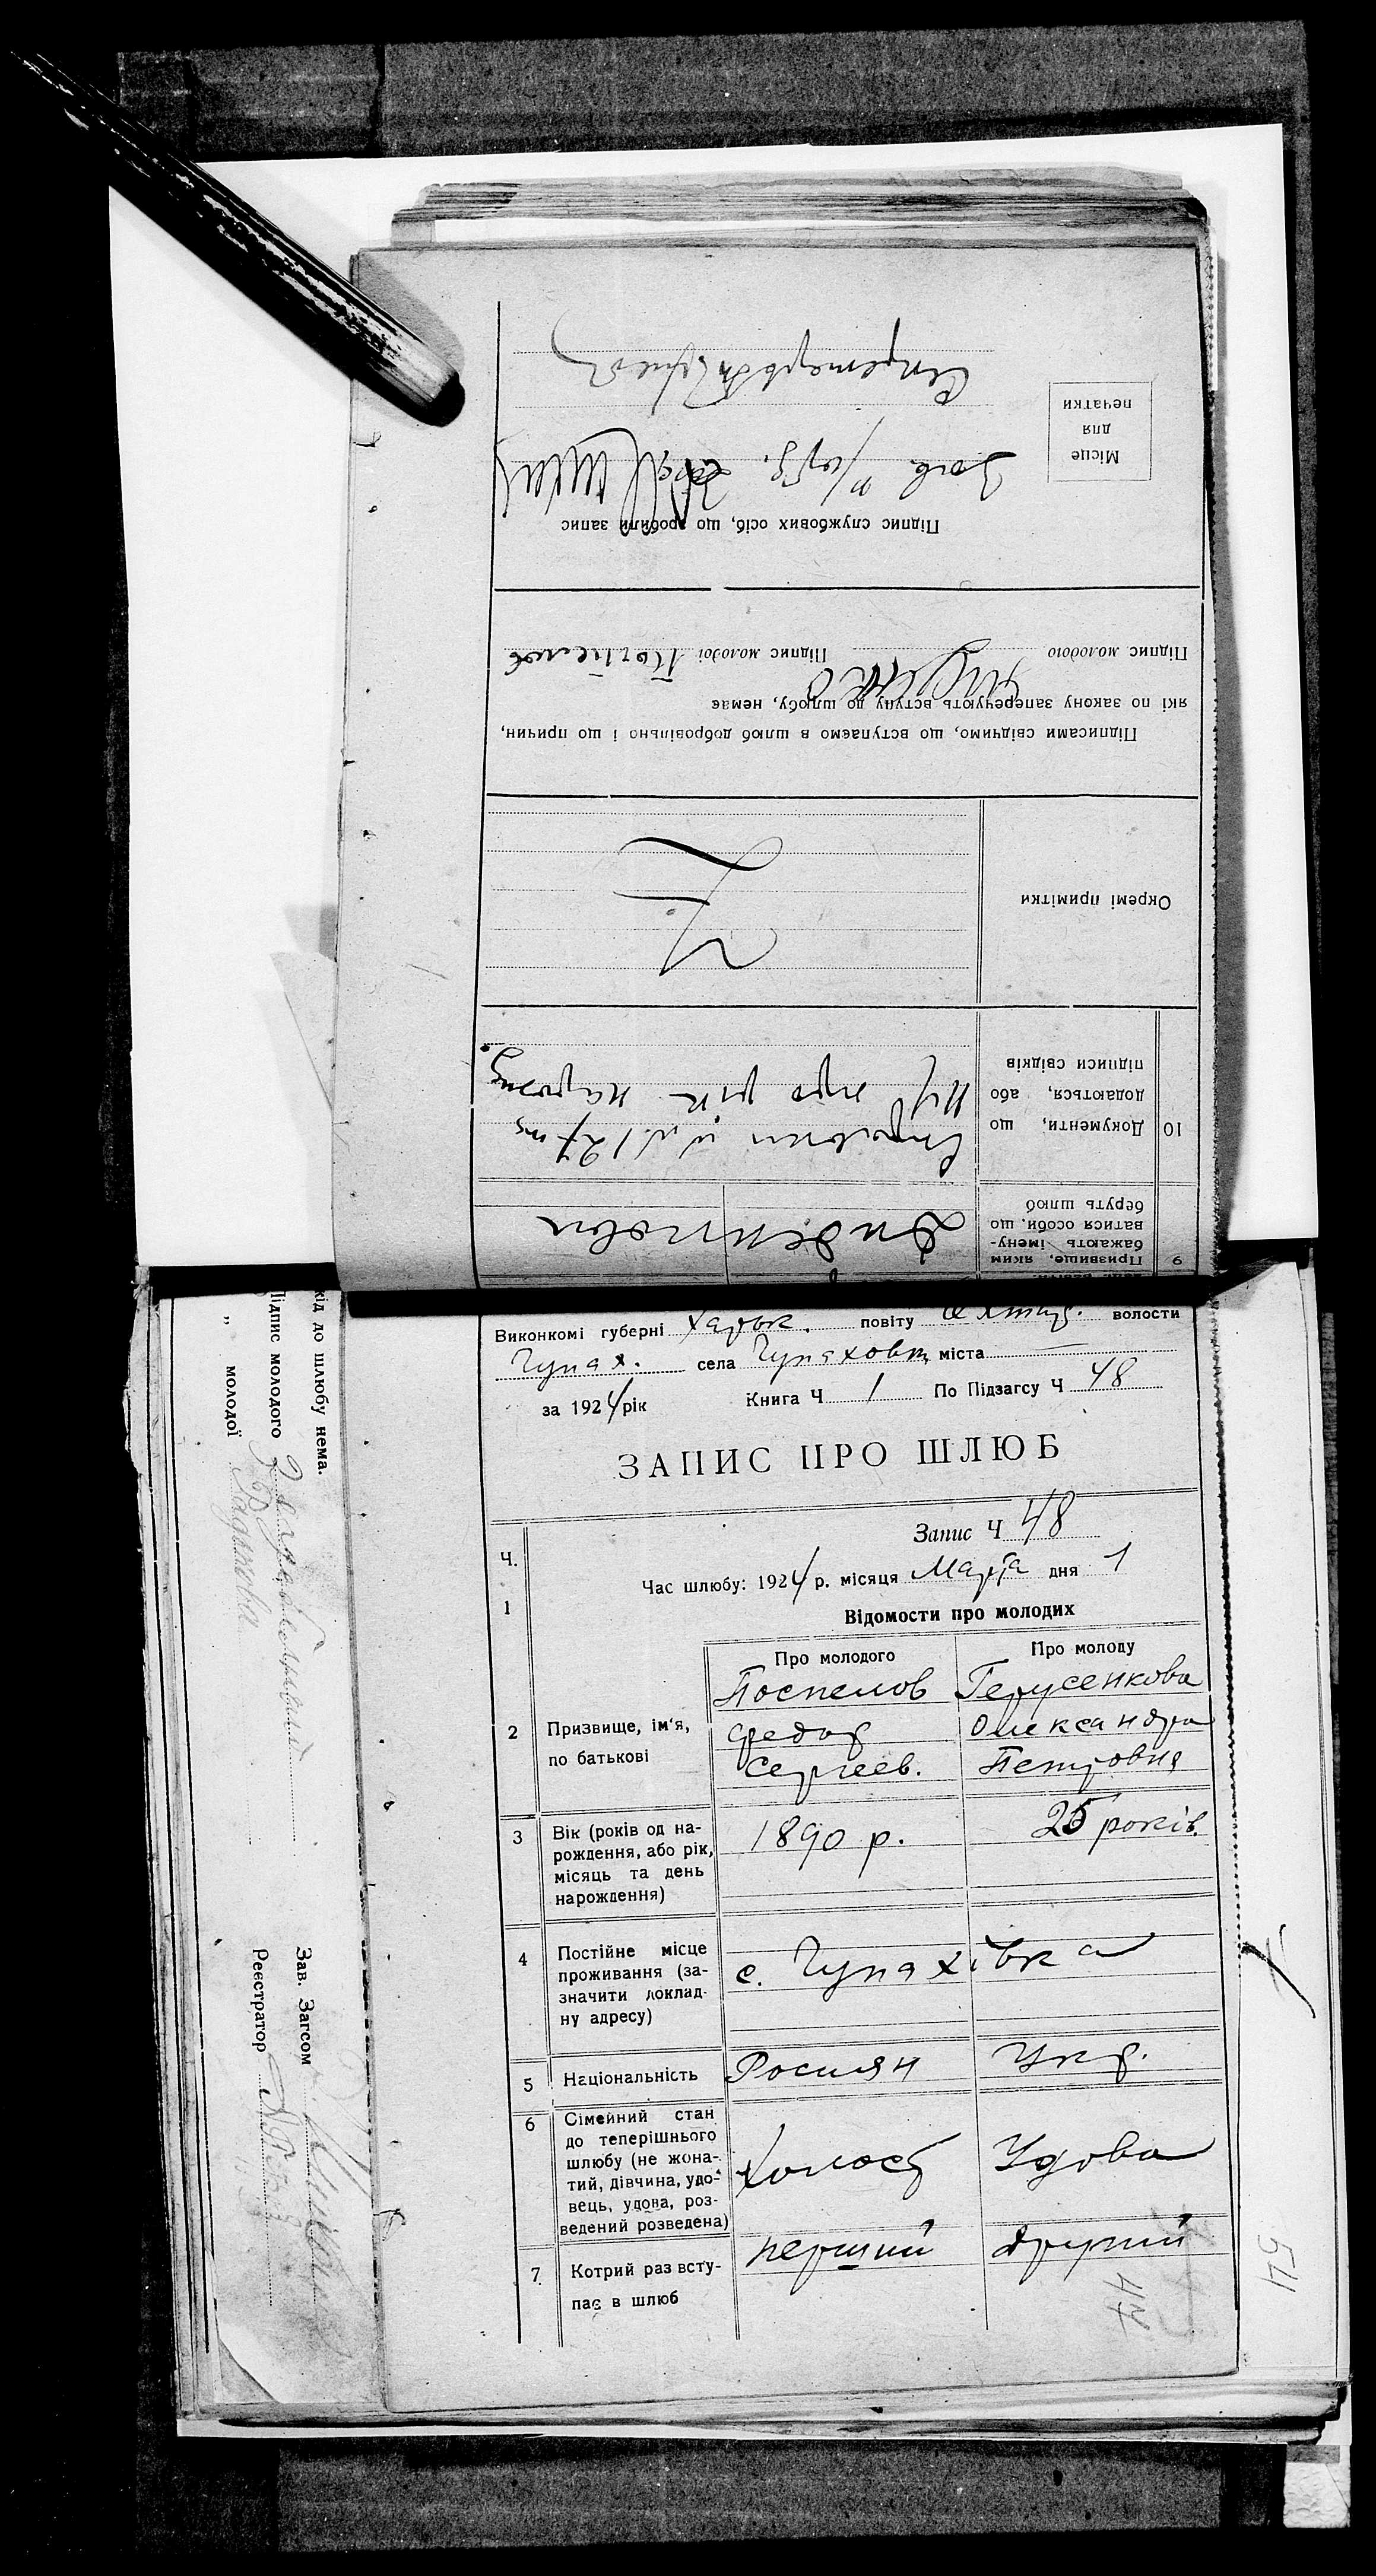 Виконкомі губерні Харьк. повіту Охтир. волости
Чупах. села Чупаховки міста
за 1924 рік Книга Ч 1 По Підзагсу Ч 48
ЗАПИС ПРО ШЛЮБ
Запис Ч 48
Ч.
Час шлюбу: 1924 р. місяця Марта дня 1
1
Відомости про молодих
Про молодого Про молоду
Поспелов Герусенкова
2 Призвище, ім'я, Федор Олександра
по батькові Сергеев. Петровна
3 Вік (років од на-
рождення, або рік, 1890 р. 25 років.
місяць та день
нарождення)
4 Постійне місце
проживання (за- с. Чупахівка
значити доклад-
ну адресу)
5 Національність Росиян Укр.
6 Сімейний стан
до теперішнього
шлюбу (не жона-
тий, дівчина, удо- Холост Удова
вець, удова, роз-
ведений розведена)
7 Котрий раз всту- перший другий
пає в шлюб
47
54
9 Призвище, яким
бажають імену-
ватися особи, що
беруть шлюб
10 Документи, що
додаються, або про рік
підписи свідків
Окремі примітки
Підписами свідчимо, що вступаємо в шлюб добровільно і що причин,
які по закону заперечують вступу до шлюбу, немає
Підпис молодого Підпис молодої
Підпис службових осіб, що зробили запис
Місце
для
печатки
Секретарь
шкід до шлюбу нема.
Підпис молодого
„ молодої
Зав. Загсом
Реєстратор